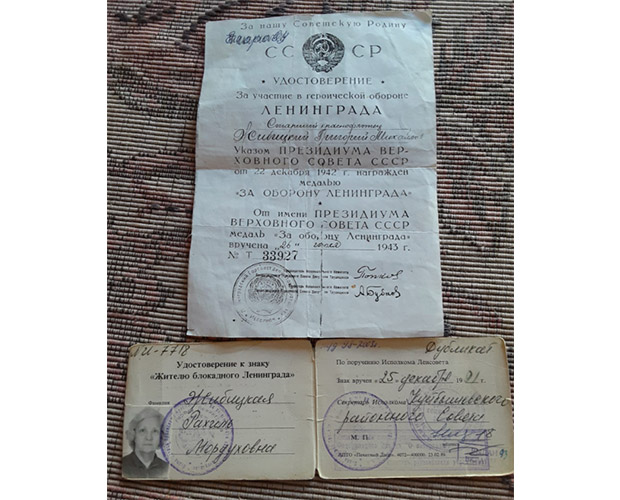 За нашу Советскую Родину
СССР
УДОСТОВЕРЕНИЕ
За участие в героической обороне
ЛЕНИНГРАДА
Старший краснофлотец
Жывицкий Григорий Михайлов
Указом ПРЕЗИДИУМА ВЕР-
ХОВНОГО СОВЕТА СССР
от 22 декабря 1942 г. награжден
медалью
«ЗА ОБОРОНУ ЛЕНИНГРАДА»
От имени ПРЕЗИДИУМА
ВЕРХОВНОГО СОВЕТА СССР
медаль «За обо ну Ленинграда»
вручена „26" 1943 г.
№ Т 33927
Попков
А Бубнов
7718
Удостоверение к знаку
«Жителю блокадного Ленинграда»
Фамилия Жывицкая
Рахиль
Мордуховна
Дубликат
По поручению Исполкома Ленсовета
Знак вручен «25» декабря 1991 г.
Секретарь Исполкома Куйбышевского
районного Совета
М. П.